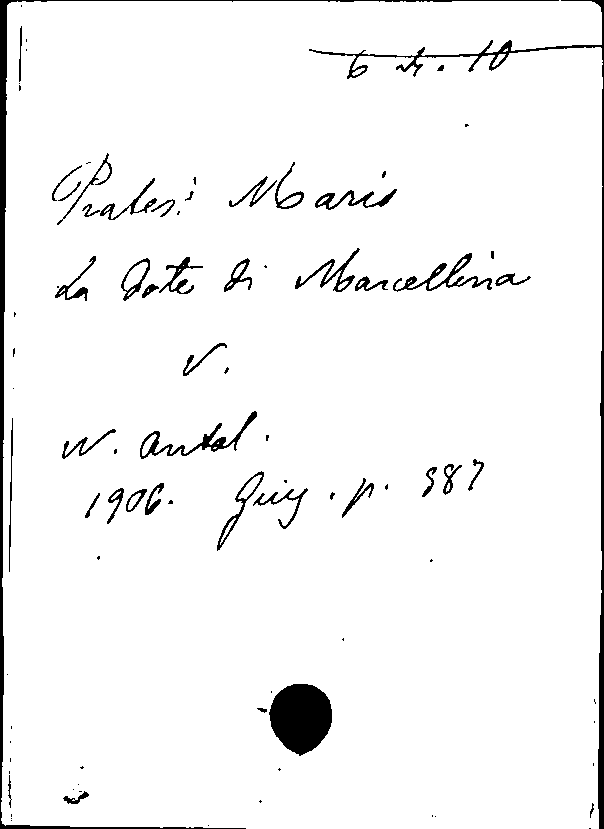 6 24. 10
Pratesi Mario
La Dote di Marcellina
V.
N. Antol.
1906. Giug. p. 387